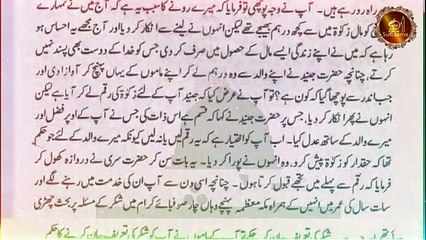 راہ رو رہے ہیں۔ آپ نے وجہ پوچھی تو فرمایا کہ میرے رونے کا سبب یہ ہے کہ آج میں نے تمہارے
کو مال زکوٰۃ میں سے کچھ درہم بھیجے تھے لیکن انہوں نے لینے سے انکار کر دیا اور آج مجھے یہ احساس ہو
رہا ہے کہ میں نے اپنی زندگی ایسے مال کے حصول میں صرف کر دی جس کو خدا کے دوست بھی پسند نہیں
کرتے۔ چنانچہ حضرت جنید نے وہ درہم لے کر اپنے ماموں کے یہاں پہنچ کر آواز دی اور
جب اندر سے پوچھا گیا کہ کون ہے؟ تو آپ نے عرض کیا کہ جنید آپ کے لئے زکوٰۃ کی رقم لے کر آیا ہے لیکن
انہوں نے پھر انکار کر دیا۔ جس پر حضرت جنید نے کہا کہ قسم ہے اس ذات کی جس نے آپ کے اوپر فضل اور
میرے والد کے ساتھ عدل کیا۔ اب آپ کو اختیار ہے کہ یہ رقم لیں یا نہ لیں کیونکہ میرے والد کے لئے جو حکم
تھا کہ حقدار کو زکوٰۃ پیش کرو، وہ انہوں نے پورا کر دیا۔ یہ بات سن کر حضرت سری نے دروازہ کھول کر
فرمایا کہ رقم سے پہلے میں تجھے قبول کرتا ہوں۔ چنانچہ اسی دن سے آپ ان کی خدمت میں رہنے لگے اور
سات سال کی عمر میں انہیں کے ہمراہ مکہ معظمہ پہنچے وہاں چار صوفیائے کرام میں شکر کے مسئلہ پر بحث چھڑی
Sufi Islamia